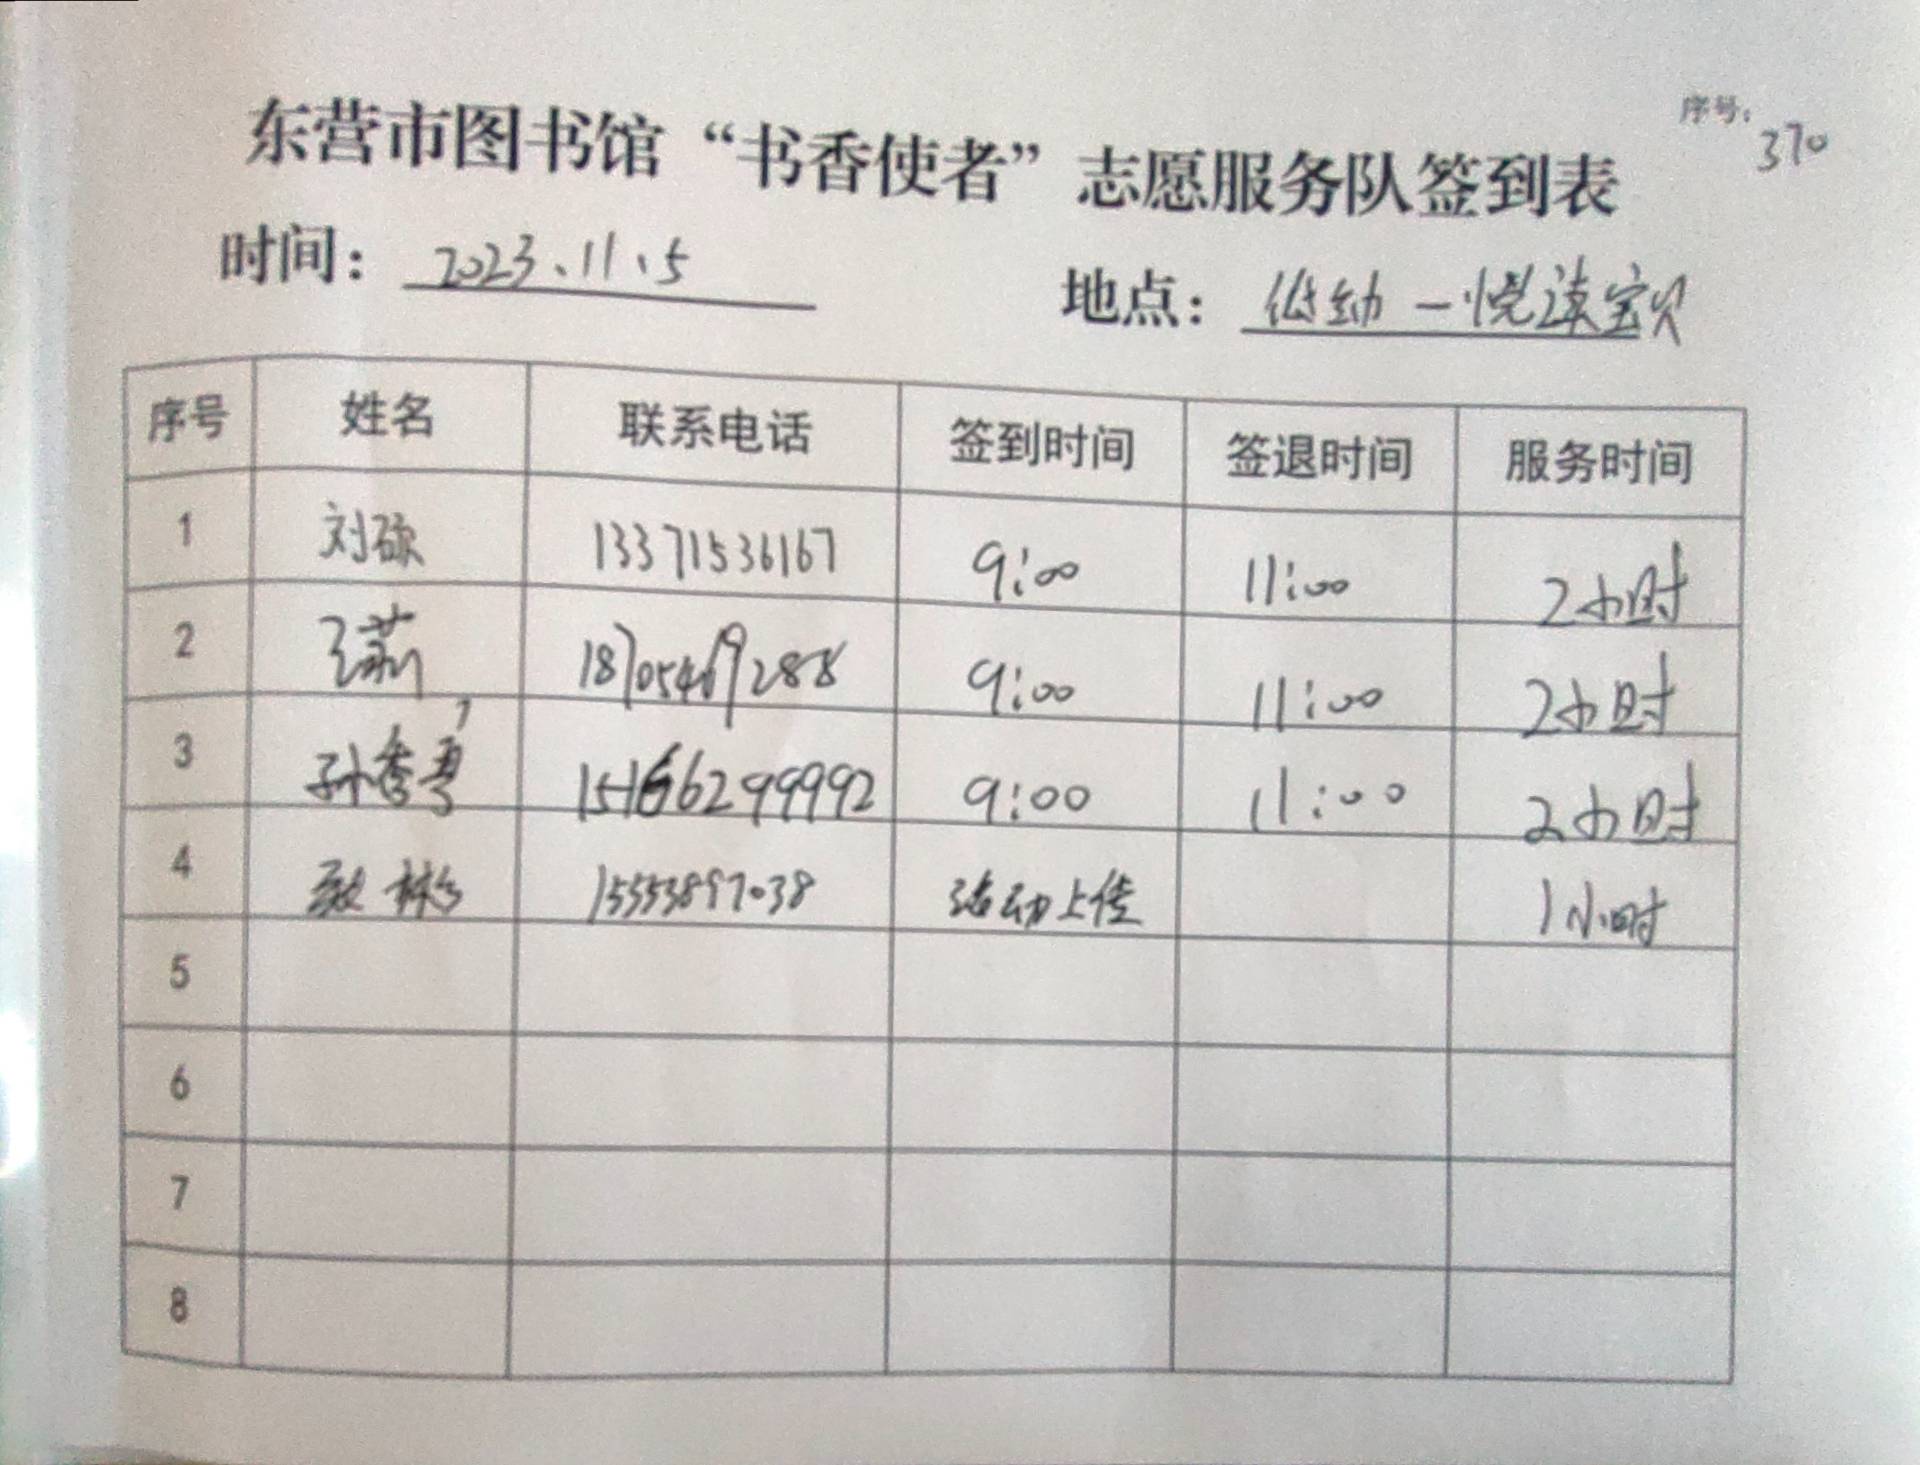 序号：
370
东营市图书馆“书香使者”志愿服务队签到表
时间：2023.11.5 地点：低幼—悦读宝贝
序号 姓名 联系电话 签到时间 签退时间 服务时间
1 刘硕 13371536167 9:00 11:00 2小时
2 9:00 11:00 2小时
3 9:00 11:00 2小时
4 15553897038 活动上传 1小时
5
6
7
8